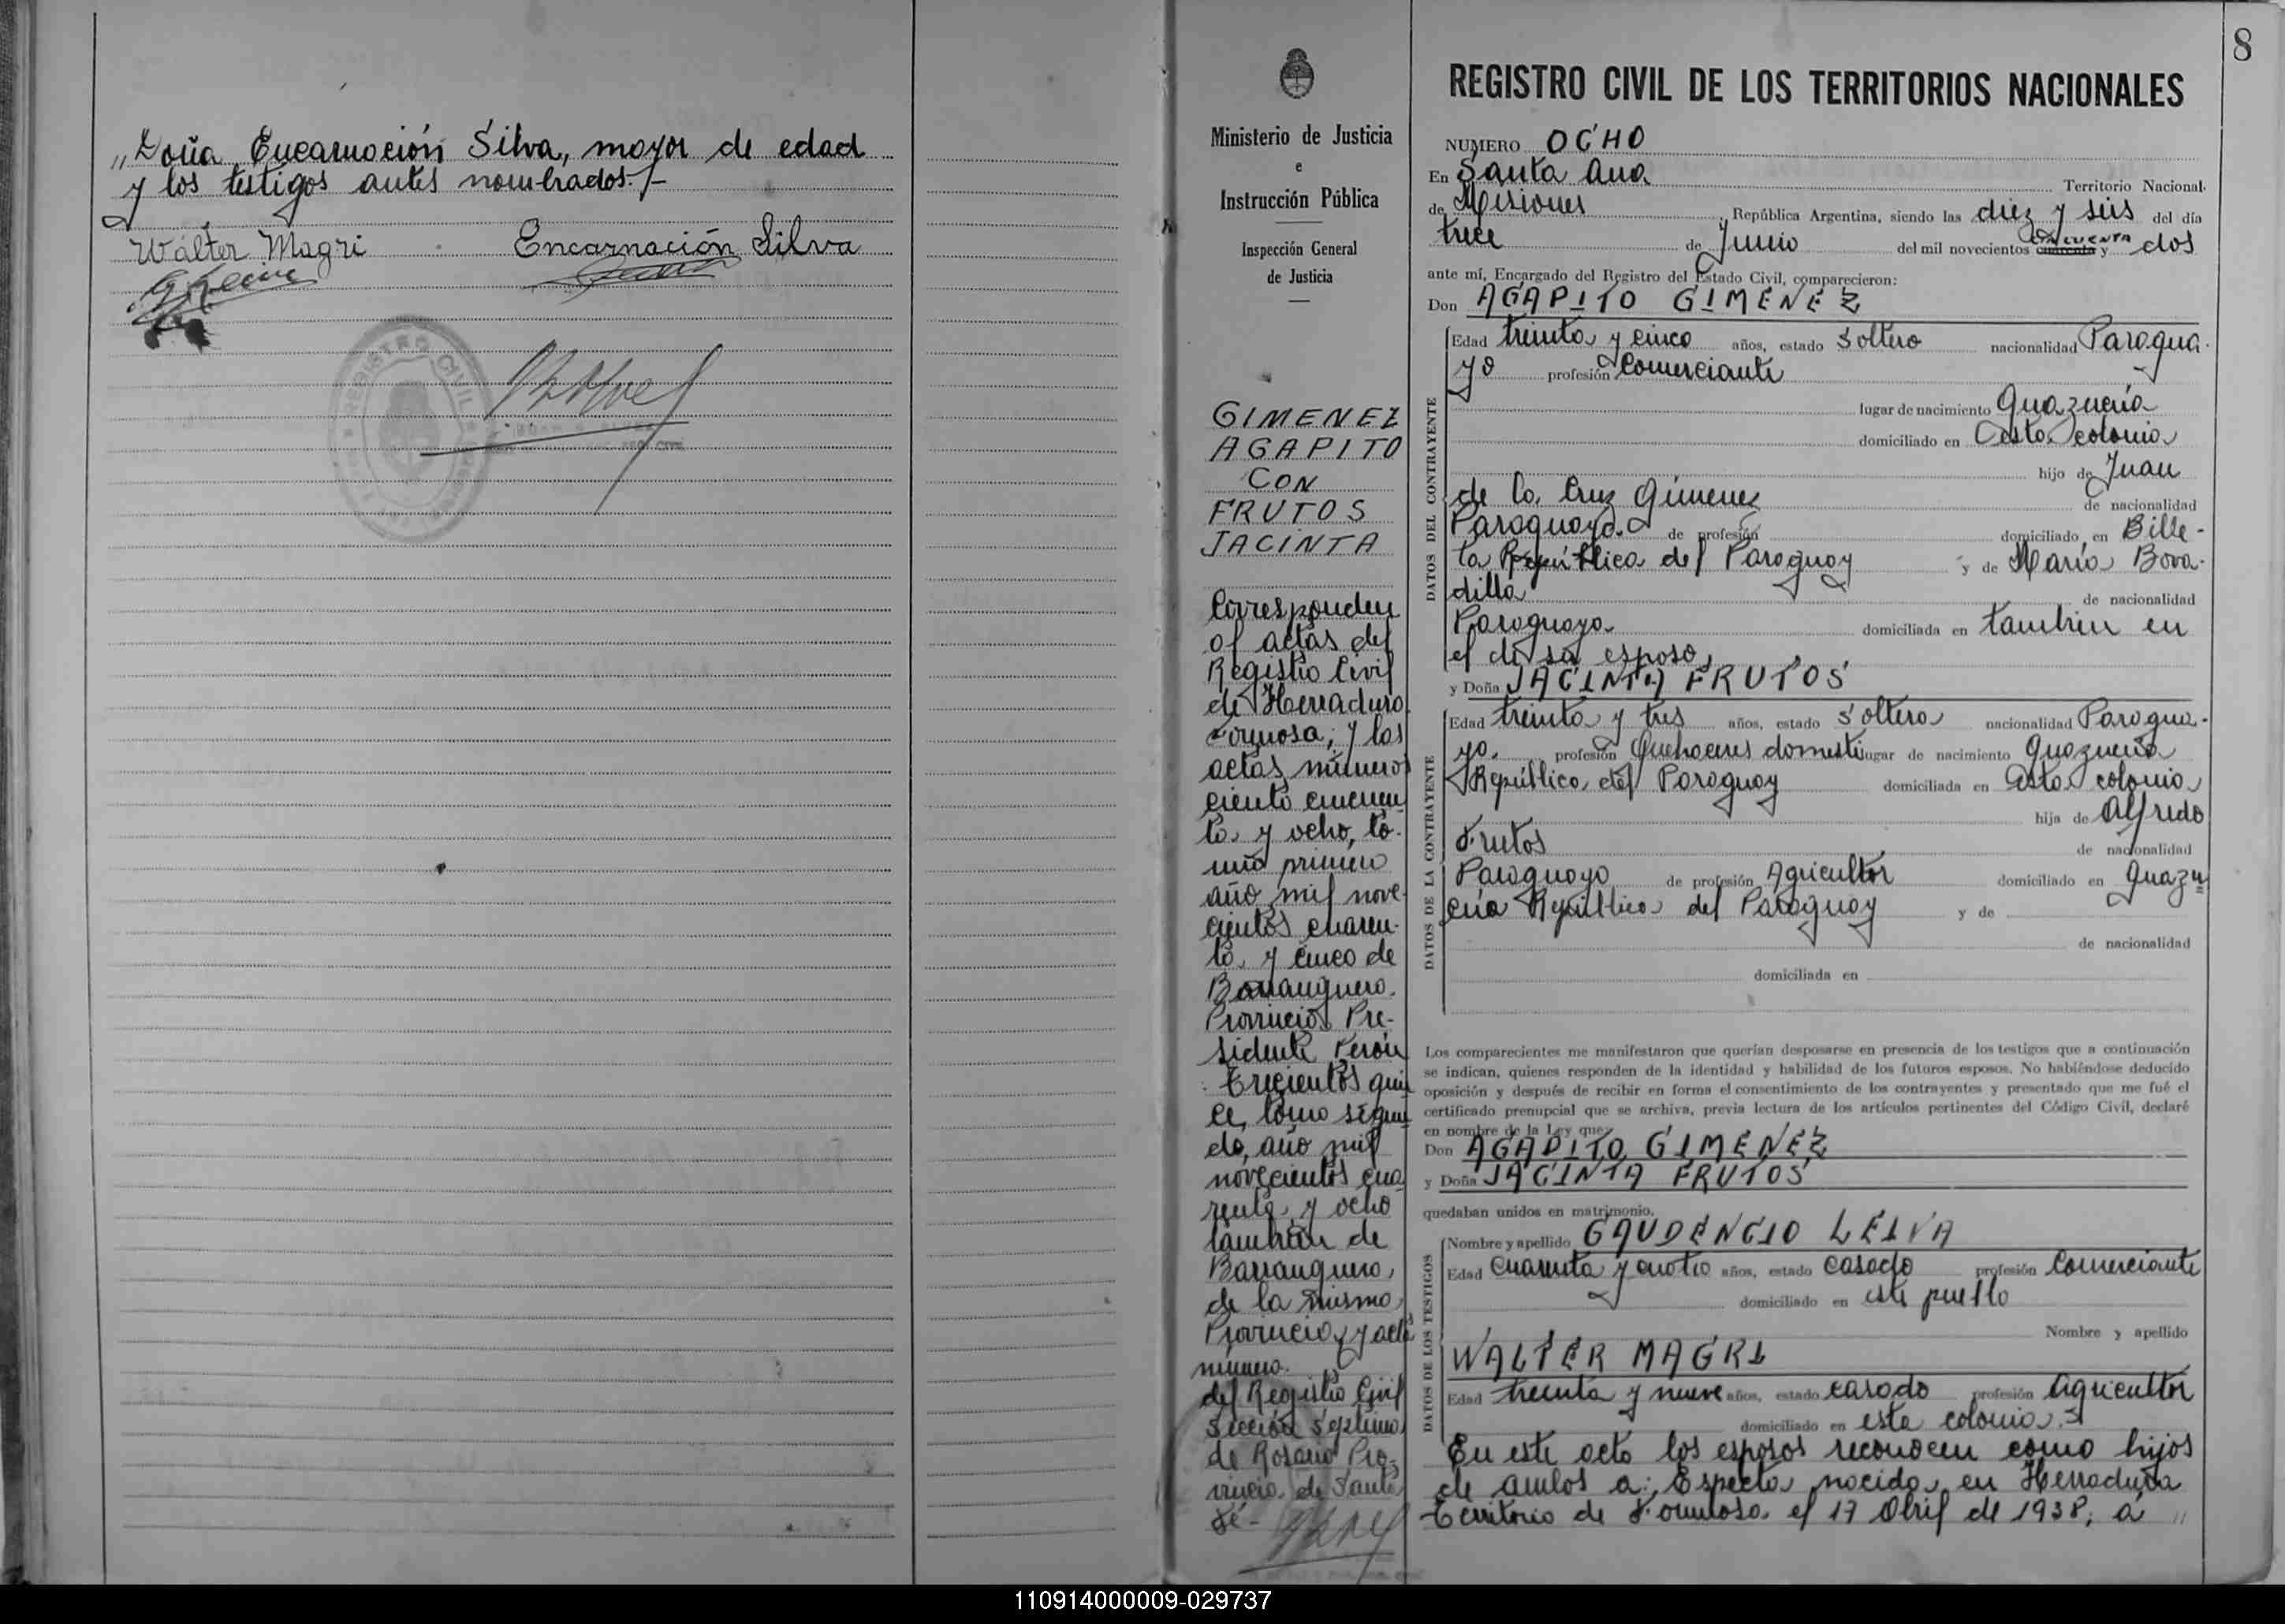 „ Doña Encarnación Silva, mayor de edad
y los testigos antes nombrados.-
Wálter Magri Encarnación Silva
REGISTRO CIVIL
8
Ministerio de Justicia
e
Instrucción Pública
Inspección General
de Justicia
GIMENEZ
AGAPITO
CON
FRUTOS
JACINTA
Corresponden
al actas del
Registro Civil
de Herradura
Formosa; y las
actas número
ciento cincuen
ta y ocho, to-
mo primero
año mil nove-
cientos cuaren-
ta y cinco de
Barranquera.
Provincia Pre-
sidente Perón
Trecientos quin
ce, tomo segun
do, año mil
novecientos cua
renta y ocho
tambien de
Barranquera,
de la misma
Provincia, y acta
número.
del Registro Civil
Sección Septima
de Rosario Pro-
vincia de Santa
Fé-
REGISTRO CIVIL DE LOS TERRITORIOS NACIONALES
NUMERO OCHO
En Santa Ana Territorio Nacional
de Misiones, República Argentina, siendo las diez y seis del día
trece de Junio del mil novecientos cuarenta CINCUENTA y dos
ante mí, Encargado del Registro del Estado Civil, comparecieron:
Don AGAPITO GIMENEZ
DATOS DEL CONTRAYENTE
Edad treinta y cinco años, estado Soltero nacionalidad Paragua-
yo profesión Comerciante
lugar de nacimiento Guazucuá
domiciliado en Esta colonia
hijo de Juan
de la Cruz Gimenez de nacionalidad
Paraguaya. de profesión domiciliado en Bille-
ta República del Paraguay y de María Bova-
dilla de nacionalidad
Paraguaya domiciliada en tambien en
el de su esposo,
y Doña JACINTA FRUTOS
DATOS DE LA CONTRAYENTE
Edad treinta y tres años, estado Soltera nacionalidad Paragua-
ya. profesión Quehaceres domesti lugar de nacimiento Guazucuá
República del Paraguay domiciliada en Esta colonia
hija de Alfredo
Frutos de nacionalidad
Paraguayo de profesión Agricultor domiciliado en Guazu
cuá República del Paraguay y de
de nacionalidad
domiciliada en
Los comparecientes me manifestaron que querían desposarse en presencia de los testigos que a continuación
se indican, quienes responden de la identidad y habilidad de los futuros esposos. No habiéndose deducido
oposición y después de recibir en forma el consentimiento de los contrayentes y presentado que me fué el
certificado prenupcial que se archiva, previa lectura de los artículos pertinentes del Código Civil, declaré
en nombre de la Ley que:
Don AGAPITO GIMENEZ
y Doña JACINTA FRUTOS
quedaban unidos en matrimonio.
DATOS DE LOS TESTIGOS
Nombre y apellido GAUDENCIO LEIVA
Edad Cuarenta y cuatro años, estado casado profesión Comerciante
domiciliado en este pueblo
Nombre y apellido
WALTER MAGRI
Edad treinta y nueve años, estado casado profesión Agricultor
domiciliado en esta colonia.
En este acto los esposos reconocen como hijos
de ambos a: Especta nacida en Herradura
Territorio de Formosa el 17 Abril de 1938; a „
110914000009-029737